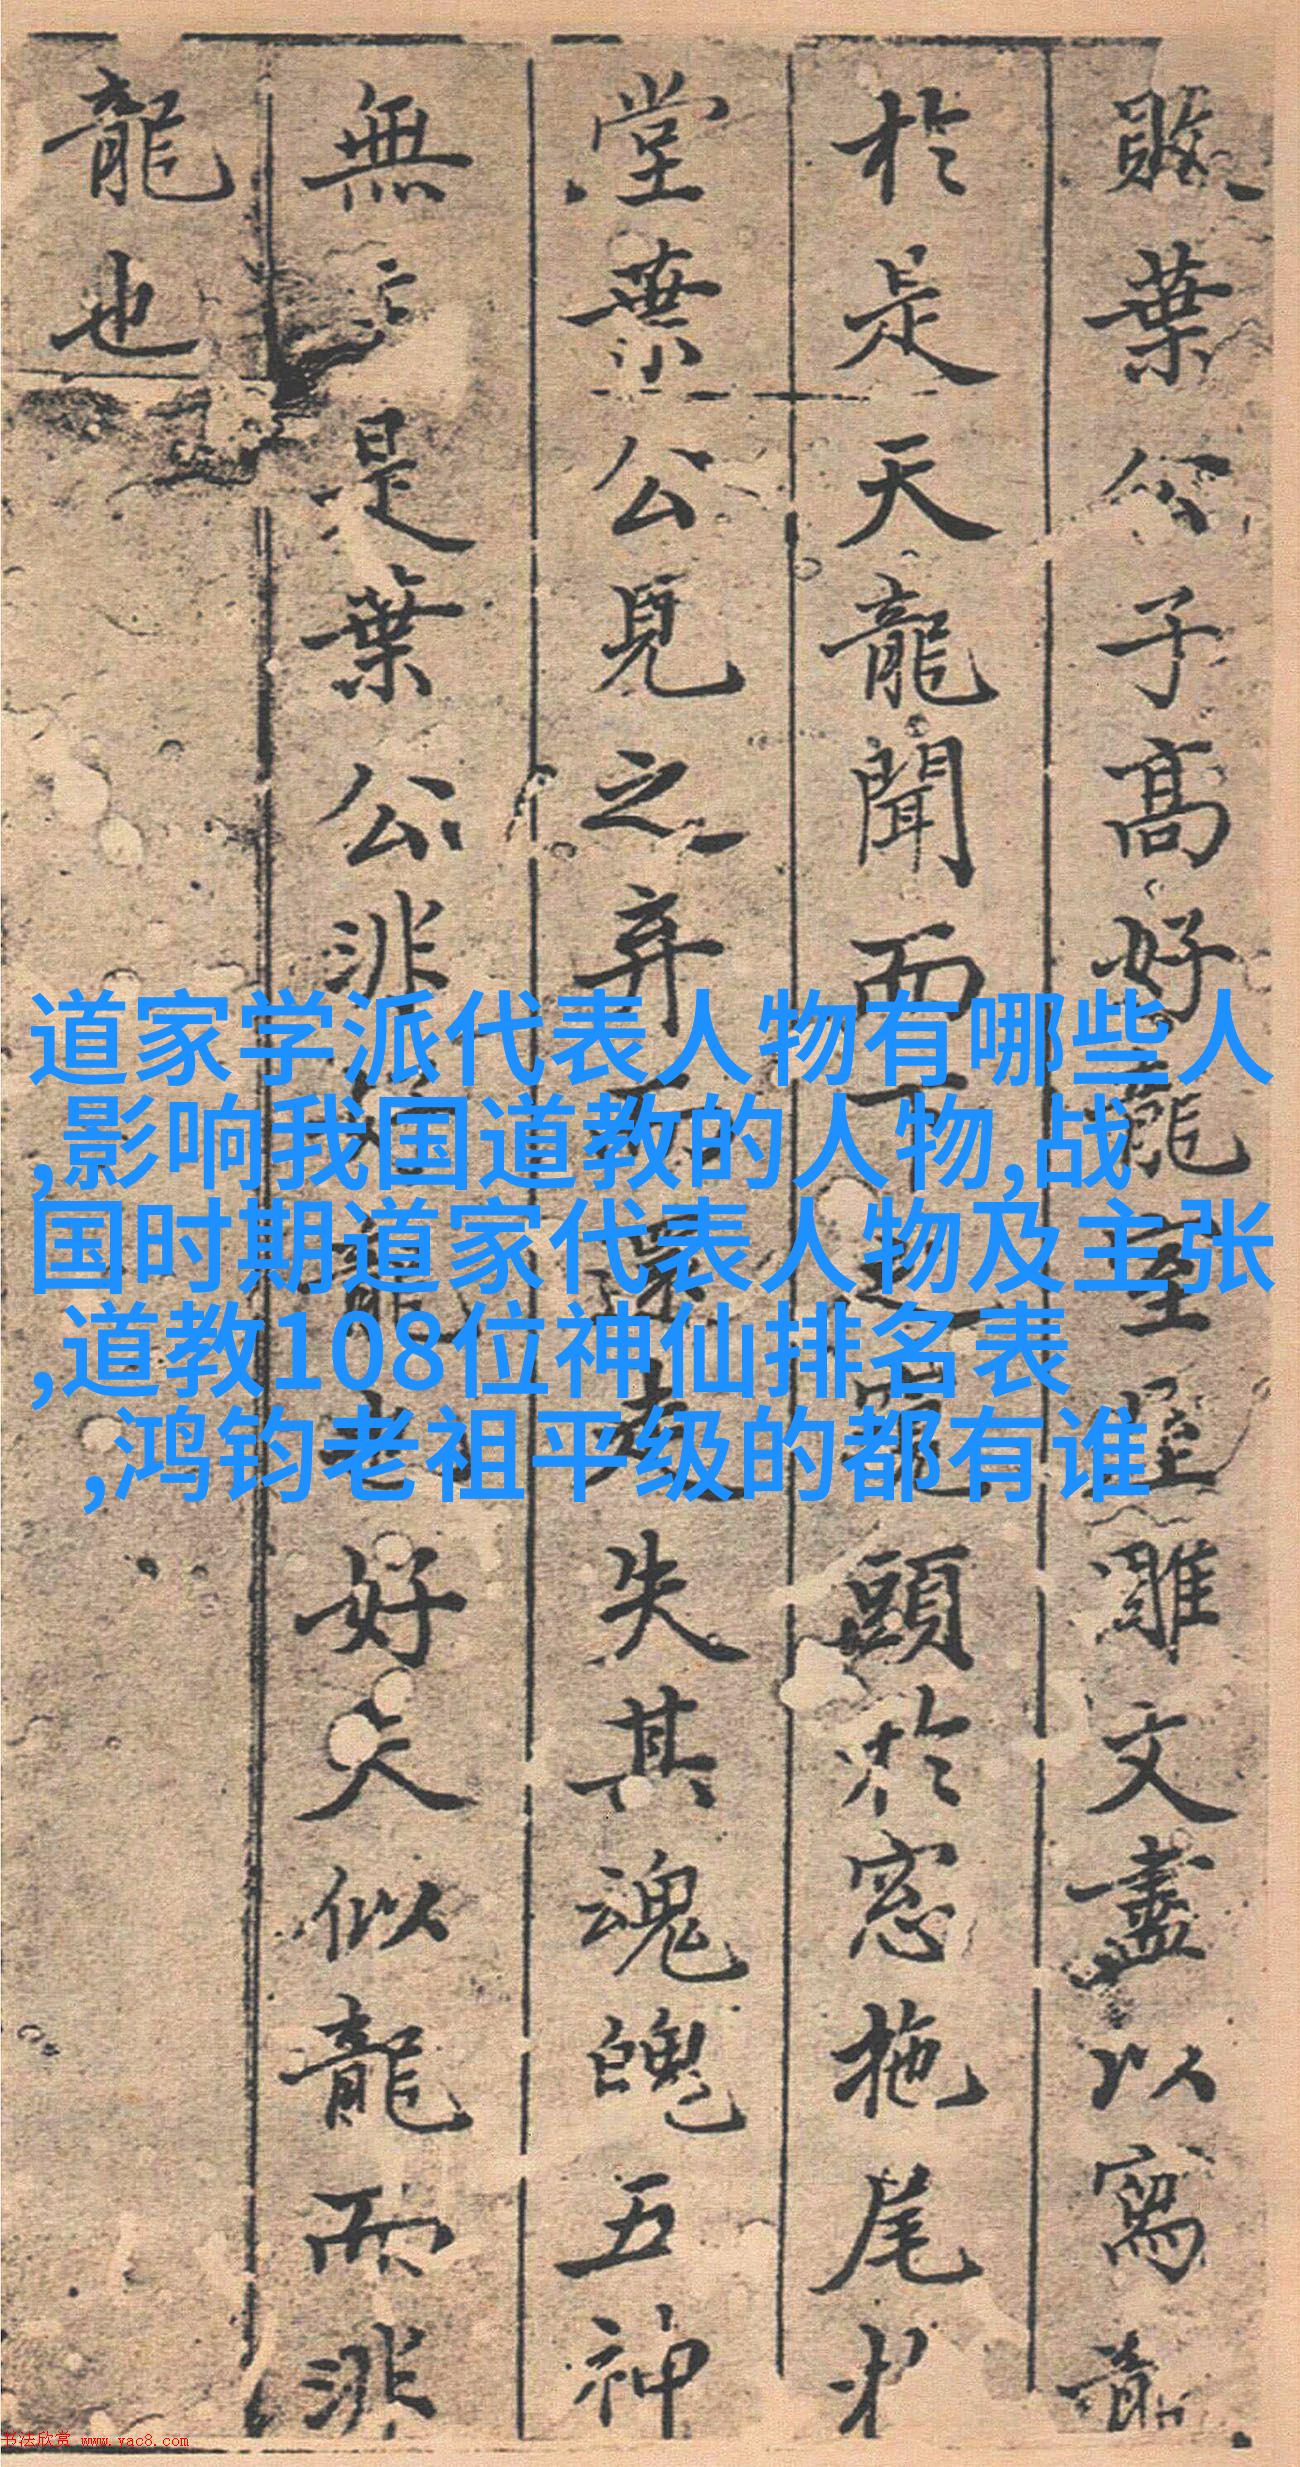 葉公子高好龍室屋雕文盡以寫龍
於是天龍聞而下之窺頭於窓拖尾於
堂葉公見之弃而還走失其魂魄五神
無主是葉公非好龍也好夫似龍而非
龍也
道家学派代表人物有哪些人
,影响我国道教的人物,战
国时期道家代表人物及主张
,道教108位神仙排名表
,鸿钧老祖平级的都有谁
书法欣赏 www.yac8.com